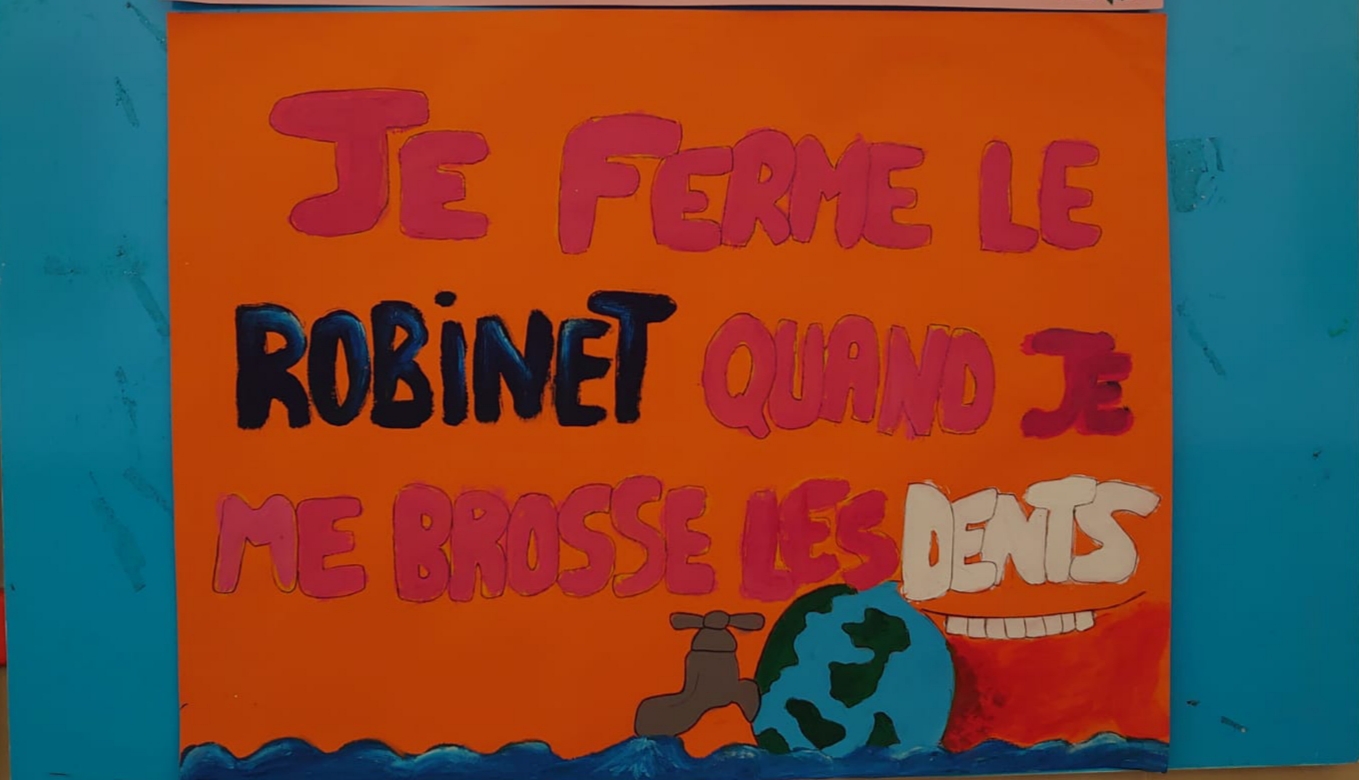 JE FERME LE
ROBiNET QUAND JE
ME BROSSE LES DENTS